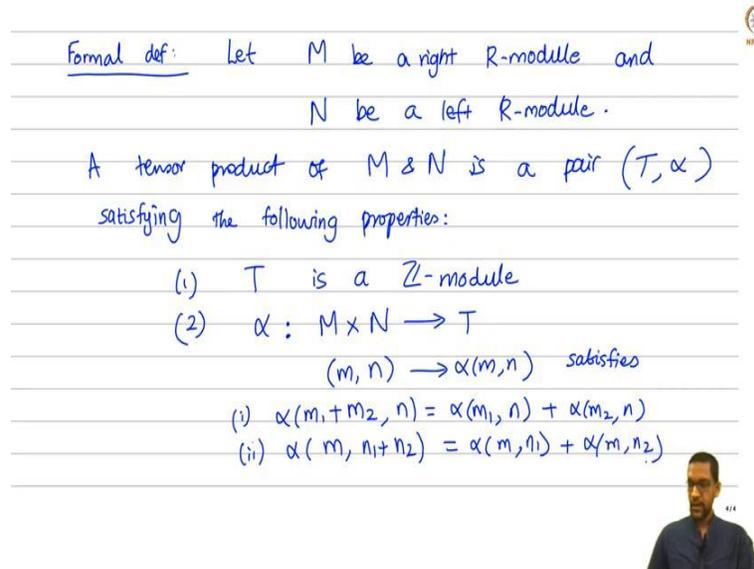 Formal def: Let M be a right R-module and
N be a left R-module.
A tensor product of M & N is a pair (T, α)
satisfying the following properties:
(1) T is a ℤ-module
(2) α : M × N → T
(m, n) → α(m,n) satisfies
(i) α(m₁+m₂, n) = α(m₁, n) + α(m₂, n)
(ii) α(m, n₁+n₂) = α(m, n₁) + α(m, n₂)
4/4